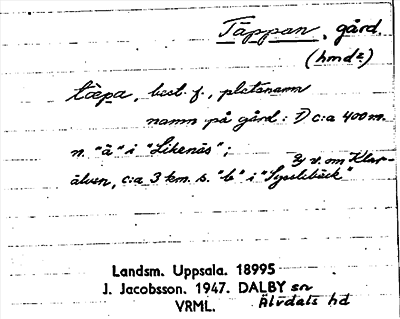 Täppan, gård.
(hmd=)
tæpa, best. f., platsnamn
namn på gård: 1) c:a 400 m.
n. "ä" i "Likenäs";
2) v. om Klar-
älven, c:a 3 km. s. "b" i "Sysslebäck"
Landsm. Uppsala. 18995
J. Jacobsson. 1947. DALBY sn
VRML. Älvdals hd